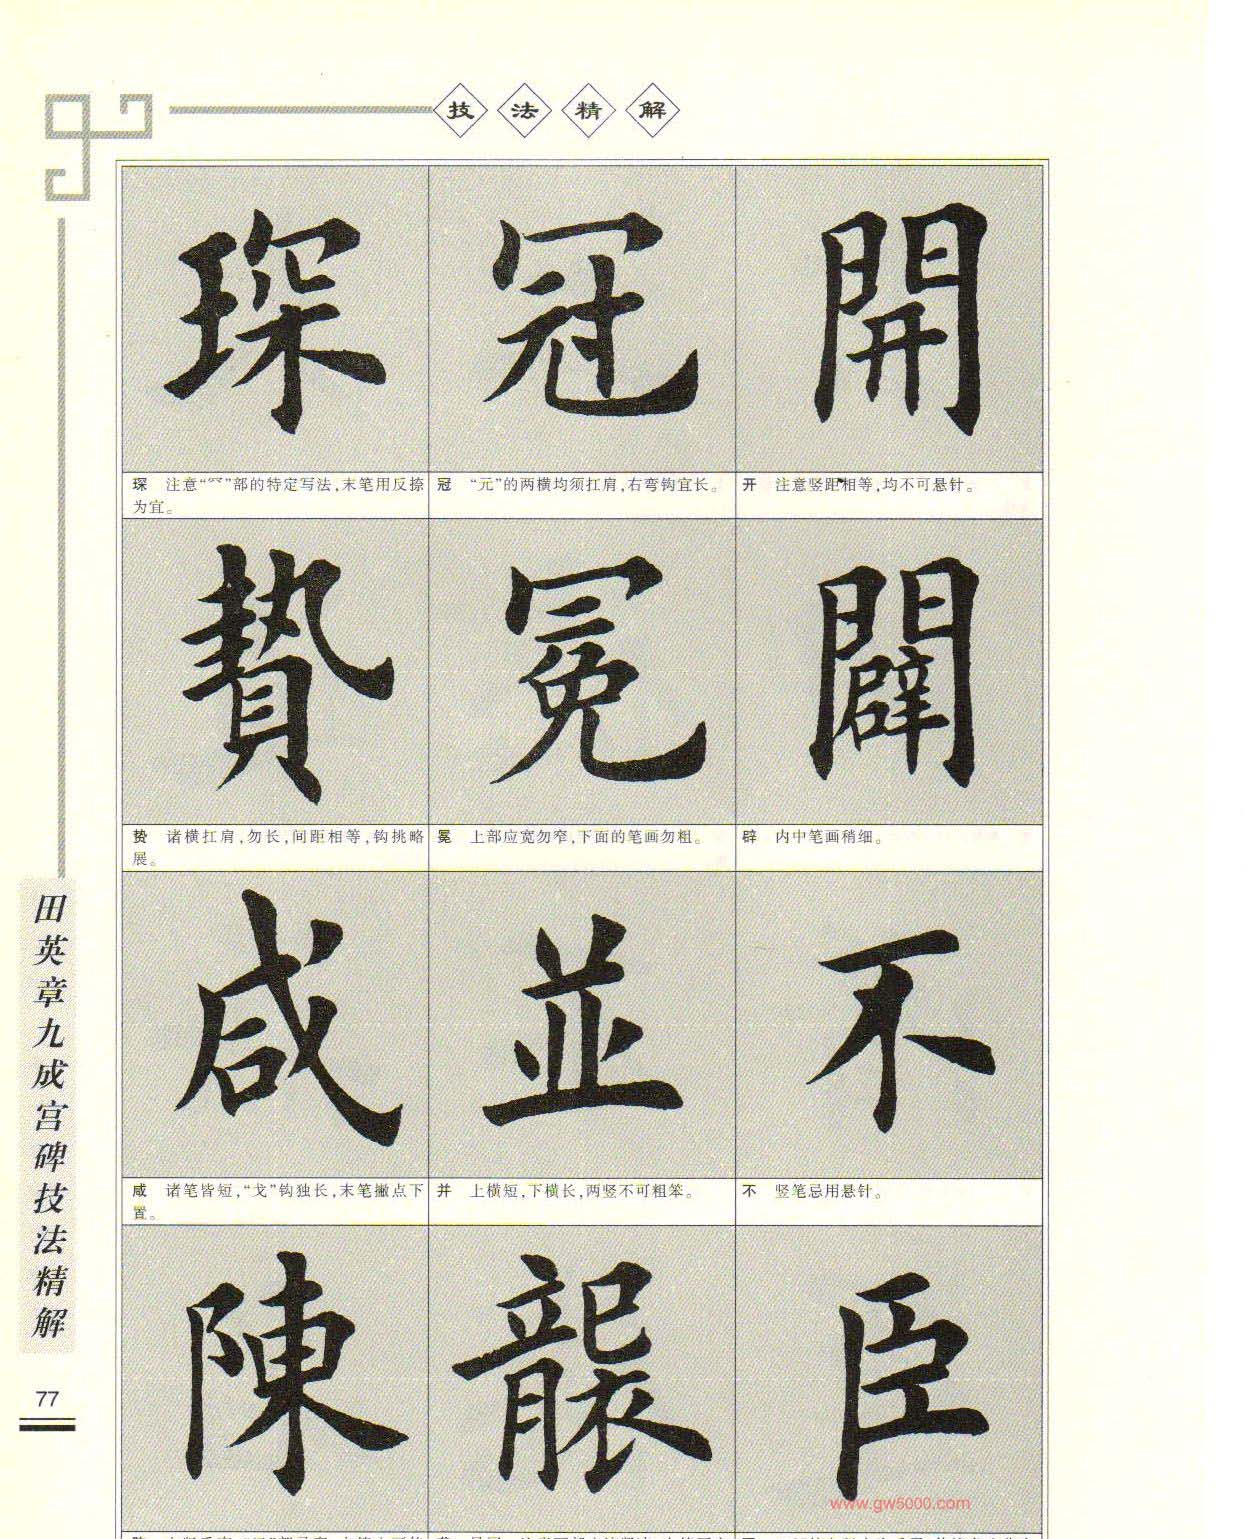 技法精解
琛 冠 開
琛　注意“罙”部的特定写法,末笔用反捺
为宜。
冠　“元”的两横均须扛肩,右弯钩宜长。
开　注意竖距相等,均不可悬针。
贄 冕 闢
贽　诸横扛肩,勿长,间距相等,钩挑略
展。
冕　上部应宽勿窄,下面的笔画勿粗。
辟　内中笔画稍细。
咸 並 不
咸　诸笔皆短,“戈”钩独长,末笔撇点下
置。
并　上横短,下横长,两竖不可粗笨。
不　竖笔忌用悬针。
陳 襲 臣
田英章九成宫碑技法精解
77
www.gw5000.com